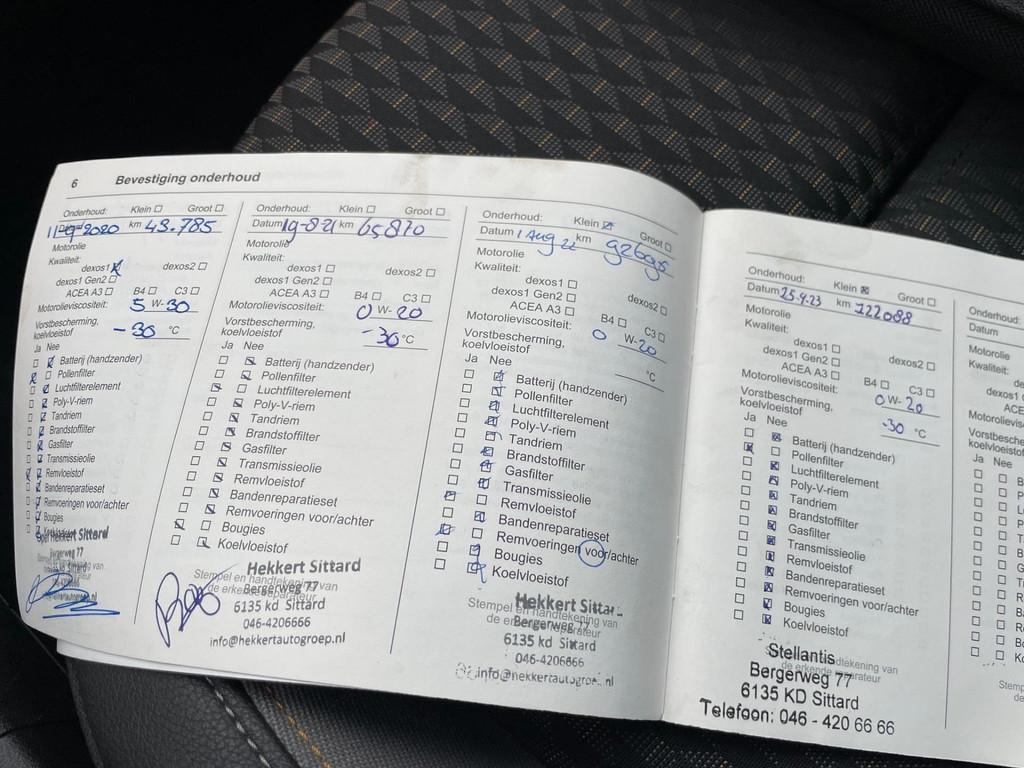 6 Bevestiging onderhoud
Onderhoud: Klein Groot
11-9-2020 km 43.785
Motorolie
Kwaliteit:
dexos1 dexos2
dexos1 Gen2
ACEA A3 B4 C3
Motorolieviscositeit: 5 W-30
Vorstbescherming,
koelvloeistof -30 °C
Ja Nee
Batterij (handzender)
Pollenfilter
Luchtfilterelement
Poly-V-riem
Tandriem
Brandstoffilter
Gasfilter
Transmissieolie
Remvloeistof
Bandenreparatieset
Remvoeringen voor/achter
Bougies
Opel Hekkert Sittard
Bergerweg 77
6135 kd Sittard
046-4206666
Onderhoud: Klein Groot
Datum 19-8-21 km 65870
Motorolie
Kwaliteit:
dexos1 dexos2
dexos1 Gen2
ACEA A3 B4 C3
Motorolieviscositeit: 0 W-20
Vorstbescherming,
koelvloeistof -30 °C
Ja Nee
Batterij (handzender)
Pollenfilter
Luchtfilterelement
Poly-V-riem
Tandriem
Brandstoffilter
Gasfilter
Transmissieolie
Remvloeistof
Bandenreparatieset
Remvoeringen voor/achter
Bougies
Koelvloeistof
Stempel en handtekening van
de erkende reparateur
Hekkert Sittard
Bergerweg 77
6135 kd Sittard
046-4206666
info@hekkertautogroep.nl
Onderhoud: Klein Groot
Datum 1 Aug 22 km 92695
Motorolie
Kwaliteit:
dexos1 dexos2
dexos1 Gen2
ACEA A3 B4 C3
Motorolieviscositeit: 0 W-20
Vorstbescherming,
koelvloeistof °C
Ja Nee
Batterij (handzender)
Pollenfilter
Luchtfilterelement
Poly-V-riem
Tandriem
Brandstoffilter
Gasfilter
Transmissieolie
Remvloeistof
Bandenreparatieset
Remvoeringen voor/achter
Bougies
Koelvloeistof
Stempel en handtekening van
de erkende reparateur
Hekkert Sittar
Bergerweg 77
6135 kd Sittard
046-4206666
info@hekkertautogroep.nl
Onderhoud: Klein Groot
Datum 25.4.23 km 122088
Motorolie
Kwaliteit:
dexos1 dexos2
dexos1 Gen2
ACEA A3 B4 C3
Motorolieviscositeit: 0 W-20
Vorstbescherming,
koelvloeistof -30 °C
Ja Nee
Batterij (handzender)
Pollenfilter
Luchtfilterelement
Poly-V-riem
Tandriem
Brandstoffilter
Gasfilter
Transmissieolie
Remvloeistof
Bandenreparatieset
Remvoeringen voor/achter
Bougies
Koelvloeistof
Stempel en handtekening van
de erkende reparateur
Stellantis
Bergerweg 77
6135 KD Sittard
Telefoon: 046 - 420 66 66
Onderhoud:
Datum
Motorolie
Kwaliteit:
Ja Nee